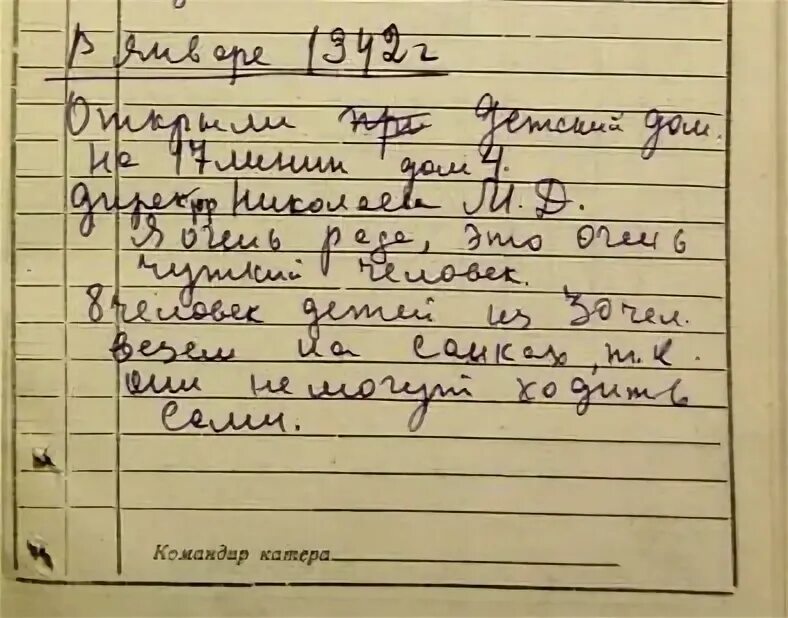 В январе 1942 г
Открыли при Детский дом.
на 17 линии дом 4.
Директор Николаева М. Д.
Я очень рада, это очень
чуткий человек.
8 человек детей из 30 чел.
везем на санках, т. к.
они не могут ходить
сами.
Командир катера